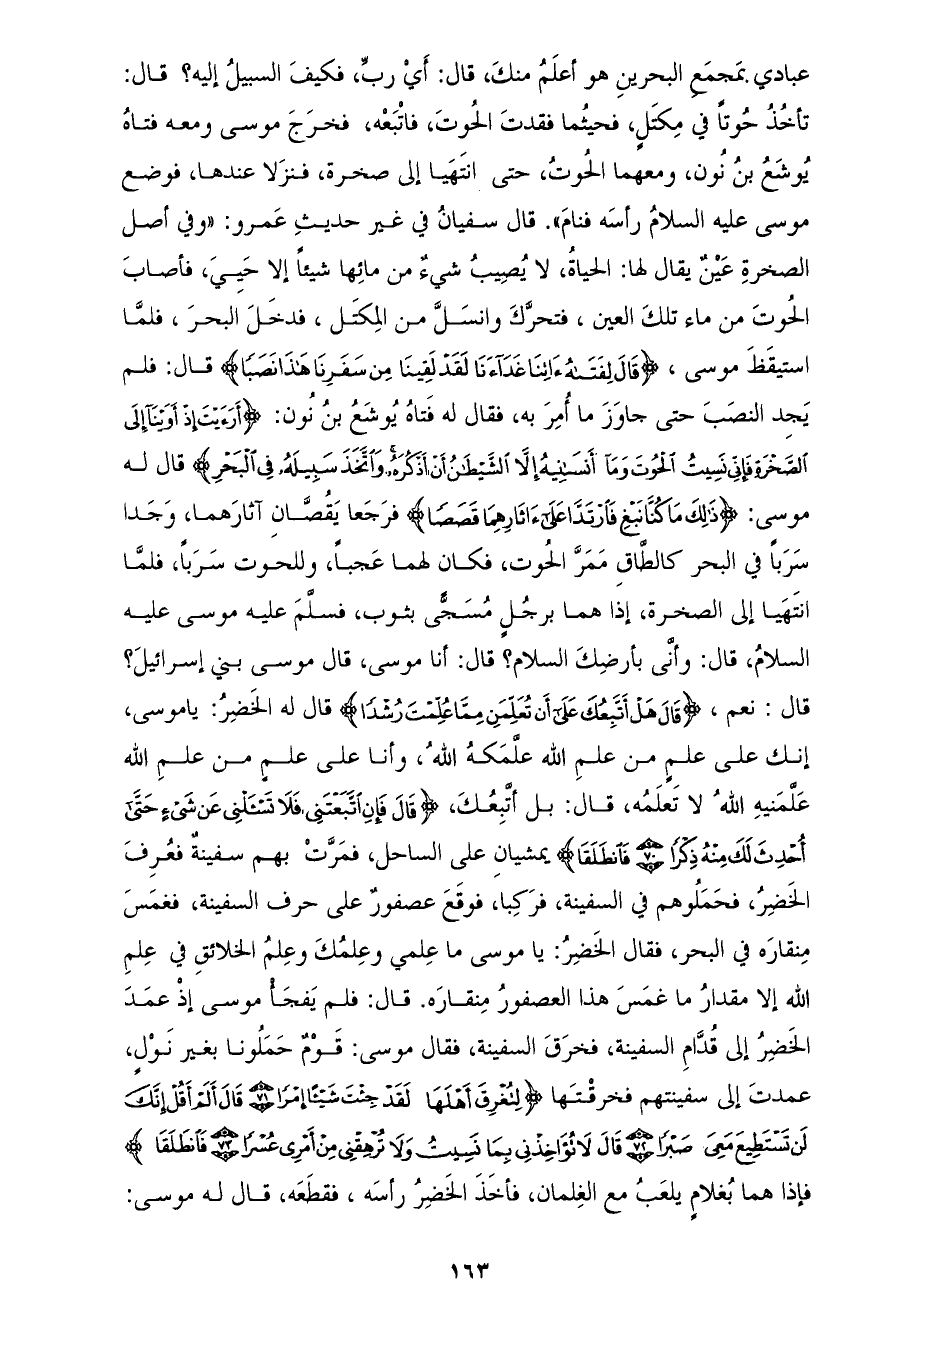 عبادي بمَجمَعِ البحرينِ هو أعلَمُ منكَ، قال: أَيْ ربِّ، فكيفَ السبيلُ إليه؟ قـال:
تأخُذُ حُوتاً في مِكتَلٍ، فحيثُما فقدتَ الحُوتَ، فاتْبَعْه، فخـرَجَ موسـى ومعـه فتـاهُ
يُوشَعُ بنُ نُون، ومعهما الحُوتُ، حتى انتَهَيـا إلى صخـرة، فـنزَلا عندهـا، فوضـع
موسى عليه السلامُ رأسَه فنامَ». قال سـفيانُ في غـير حديـثِ عَمـرو: «وفي أصـل
الصخرةِ عَيْنٌ يقال لها: الحياةُ، لا يُصِيبُ شيءٌ من مائِها شيئاً إلا حَيِـيَ، فأصـابَ
الحُوتَ من ماء تلكَ العين ، فتحرَّكَ وانسَـلَّ مـن المِكتَـل ، فدخَـلَ البحـرَ ، فلمَّـا
استيقَظَ موسى ، ﴿قَالَ لِفَتَىٰهُ ءَاتِنَا غَدَآءَنَا لَقَدْ لَقِينَا مِن سَفَرِنَا هَٰذَا نَصَبًا﴾ قـال: فلـم
يَجِد النصَبَ حتى جاوَزَ ما أُمِرَ به، فقال له فَتاهُ يُوشَعُ بنُ نُون: ﴿أَرَءَيْتَ إِذْ أَوَيْنَآ إِلَى
ٱلصَّخْرَةِ فَإِنِّي نَسِيتُ ٱلْحُوتَ وَمَآ أَنسَىٰنِيهُ إِلَّا ٱلشَّيْطَٰنُ أَنْ أَذْكُرَهُۥ وَٱتَّخَذَ سَبِيلَهُۥ فِي ٱلْبَحْرِ﴾ قال لـه
موسى: ﴿ذَٰلِكَ مَا كُنَّا نَبْغِ فَٱرْتَدَّا عَلَىٰٓ ءَاثَارِهِمَا قَصَصًا﴾ فرَجَعا يَقُصَّـانِ آثارَهمـا، وَجَـدا
سَرَباً في البحر كالطَّاقِ مَمَرَّ الحُوت، فكـان لهمـا عَجبـاً، وللحـوت سَـرَباً، فلمَّـا
انتَهَيـا إلى الصخـرة، إذا همـا برجُـلٍ مُسَـجًّى بثـوب، فسـلَّمَ عليـه موسـى عليـه
السلامُ، قال: وأنَّى بأرضِكَ السلام؟ قال: أنا موسى، قال موسـى بـني إسـرائيلَ؟
قال : نعم ، ﴿قَالَ هَلْ أَتَّبِعُكَ عَلَىٰٓ أَن تُعَلِّمَنِ مِمَّا عُلِّمْتَ رُشْدًا﴾ قال له الخَضِرُ: ياموسى،
إنـك علـى علـمٍ مـن علـمِ الله علَّمَكـهُ اللهُ، وأنـا علـى علـمٍ مـن علـمِ الله
علَّمَنيهِ اللهُ لا تَعلَمُه، قـال: بـل أتَّبِعُـكَ، ﴿قَالَ فَإِنِ ٱتَّبَعْتَنِي فَلَا تَسْـَٔلْنِي عَن شَيْءٍ حَتَّىٰٓ
أُحْدِثَ لَكَ مِنْهُ ذِكْرًا ٧٠ فَٱنطَلَقَا﴾ يمشيان على الساحل، فمَرَّتْ بهـم سـفينةٌ فعُـرِفَ
الخَضِرُ، فحَمَلُوهم في السفينة، فرَكِبا، فوقَعَ عصفورٌ علـى حرف السفينة، فغمَسَ
مِنقارَه في البحر، فقال الخَضِرُ: يا موسى ما عِلمي وعِلمُكَ وعِلمُ الخلائقِ في عِلمِ
الله إلا مقدارُ ما غمَسَ هذا العصفورُ مِنقـارَه. قـال: فلـم يَفجَـأْ موسـى إذْ عمَـدَ
الخَضِرُ إلى قُدَّامِ السفينة، فخرَقَ السفينة، فقال موسى: قَـوْمٌ حَمَلُونـا بغـير نَـوْلٍ،
عمدتَ إلى سفينتهم فخرقْتَـها ﴿لِتُغْرِقَ أَهْلَهَا لَقَدْ جِئْتَ شَيْـًٔا إِمْرًا ٧١ قَالَ أَلَمْ أَقُلْ إِنَّكَ
لَن تَسْتَطِيعَ مَعِيَ صَبْرًا ٧٢ قَالَ لَا تُؤَاخِذْنِي بِمَا نَسِيتُ وَلَا تُرْهِقْنِي مِنْ أَمْرِي عُسْرًا ٧٣ فَٱنطَلَقَا ﴾
فإذا هما بُغلامٍ يلعَبُ مع الغِلمان، فأخَذَ الخَضِرُ رأسَه ، فقطَعَه، قـال لـه موسـى:
١٦٣